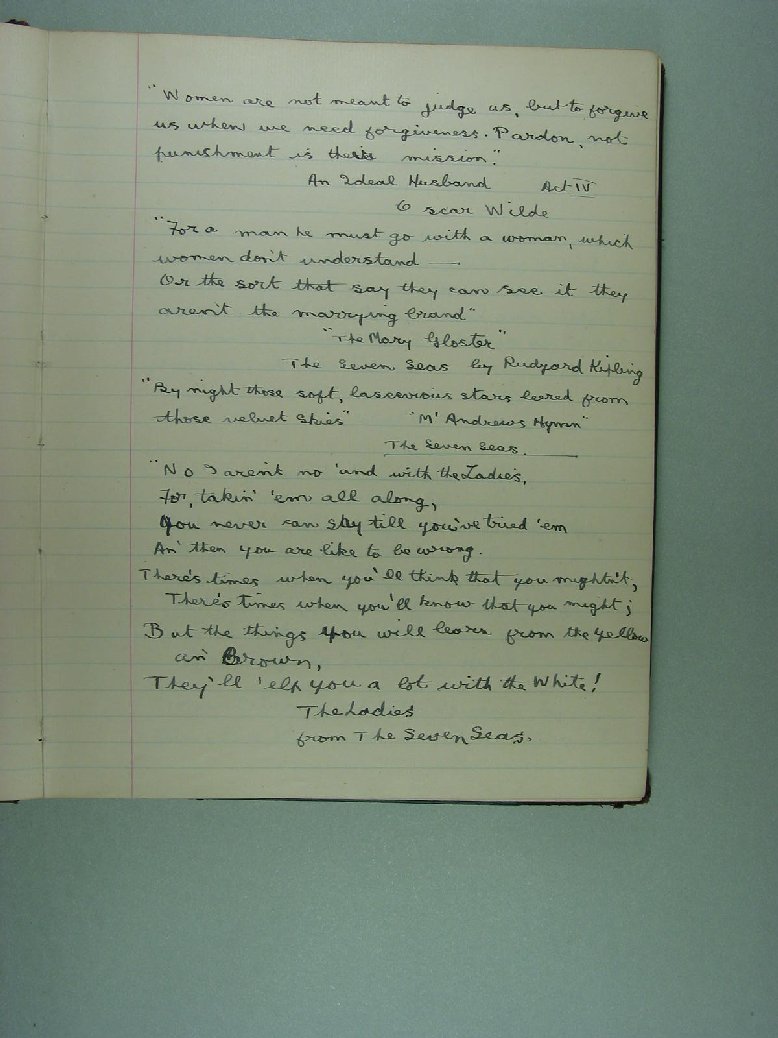 "Women are not meant to judge us, but to forgive
us when we need forgiveness. Pardon, not
punishment is their mission."
An Ideal Husband Act IV
Oscar Wilde
"For a man he must go with a woman, which
women don't understand —
Or the sort that say they can see it they
aren't the marrying brand"
"The Mary Gloster"
The Seven Seas by Rudyard Kipling
"By night those soft, lasceevious stars leered from
those velvet skies" "M'Andrews Hymn"
The Seven Seas.
"No I aren't no 'and with the Ladies,
For, takin' 'em all along,
You never can say till you've tried 'em
An' then you are like to be wrong.
There's times when you'll think that you mightn't,
There's times when you'll know that you might;
But the things you will learn from the Yellow
an' Brown,
They'll 'elp you a lot with the White!
The Ladies
from The Seven Seas.